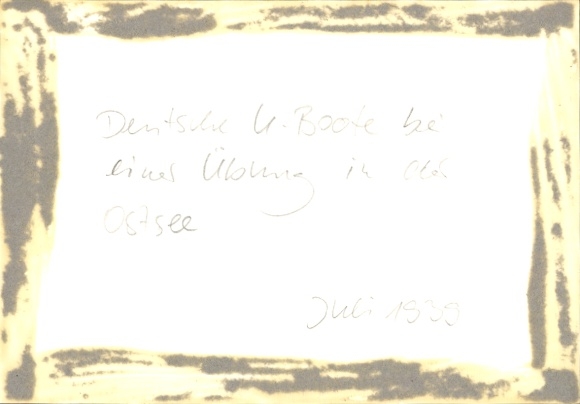 Deutsche U-Boote bei
einer Übung in der
Ostsee
Juli 1939